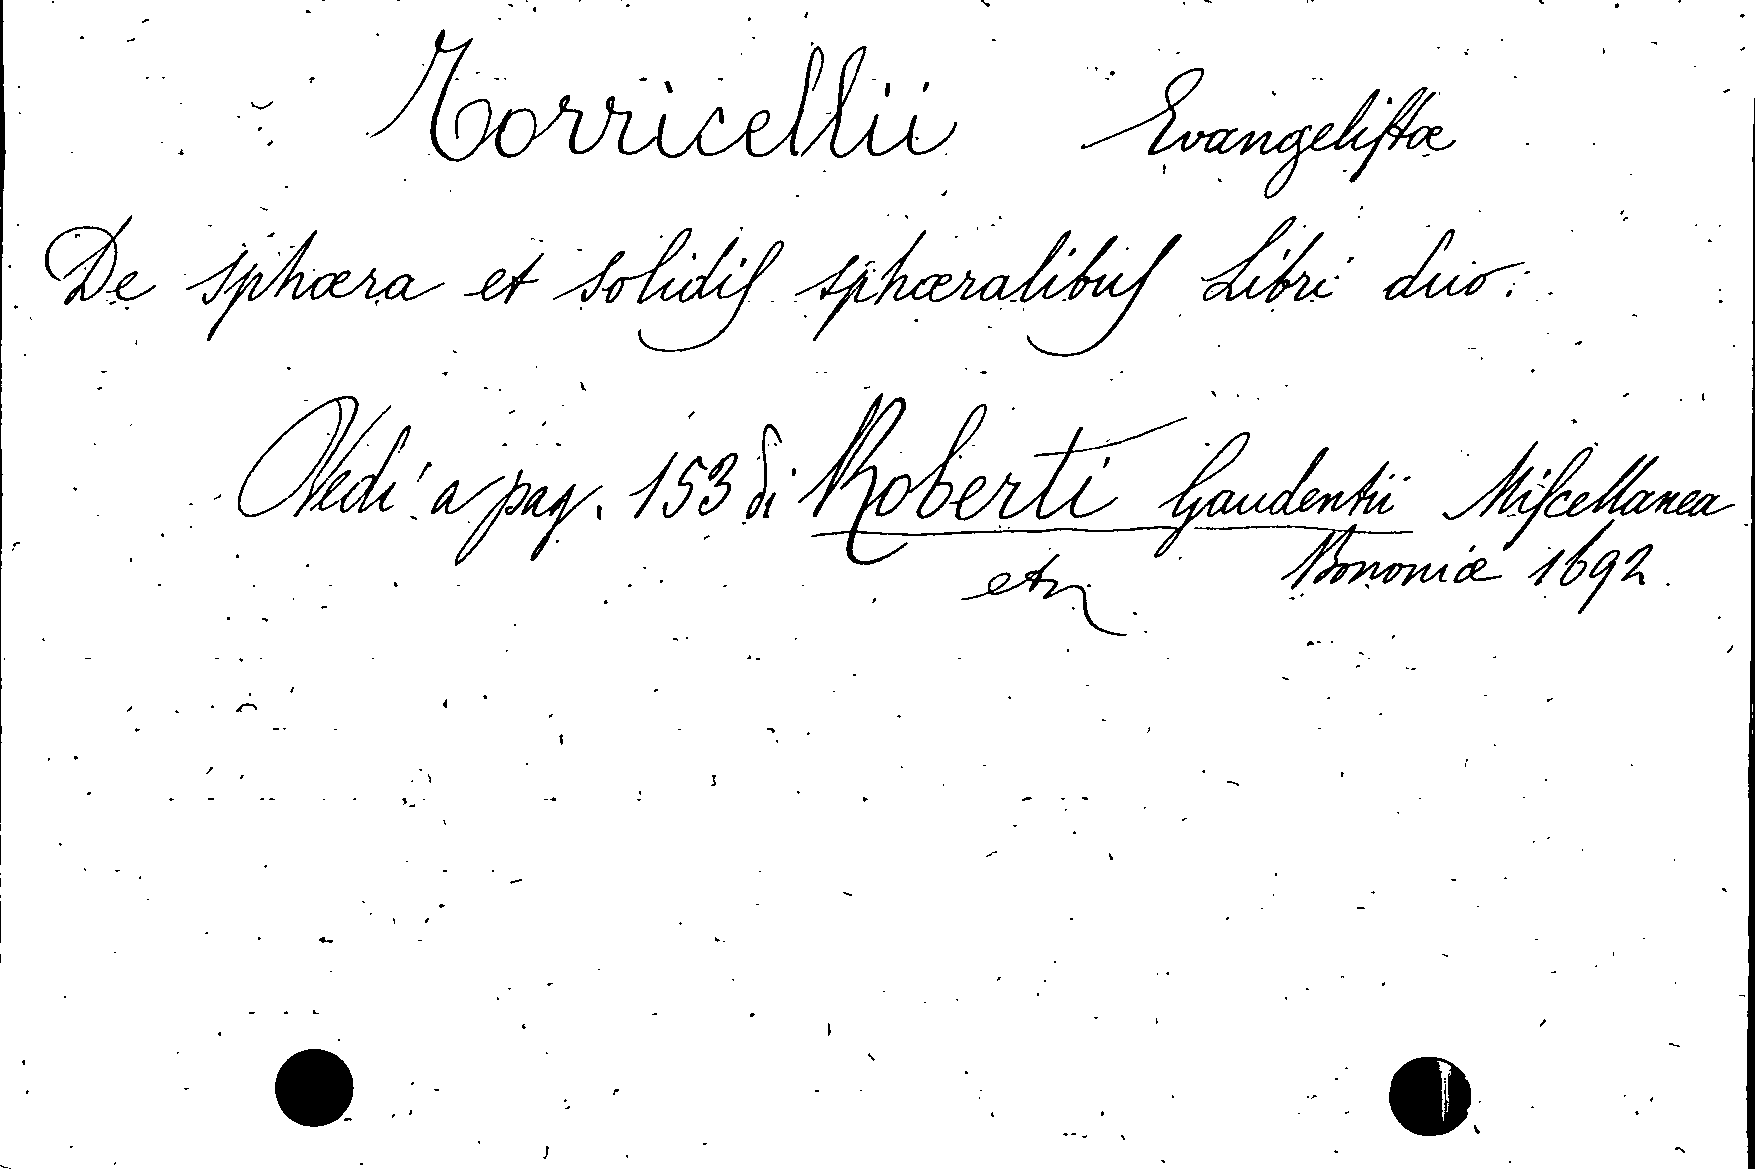 Torricellii Evangelistæ
De sphæra et solidis sphæralibus Libri duo:
Vedi a pag. 153 di Roberti Gaudentii Miscellanea
etc Bononiæ 1692.